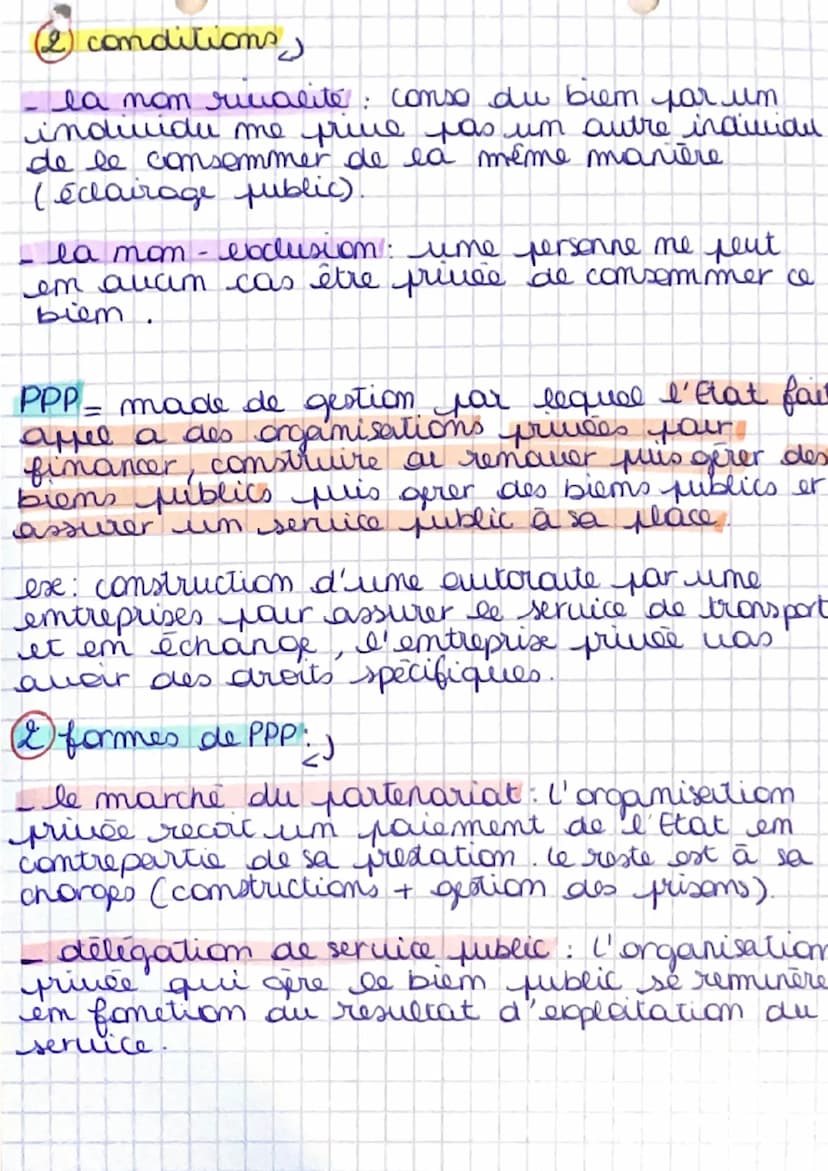 ② conditions
- la non rivalité : conso du bien par un
individu ne prive pas un autre individu
de le consommer de la même manière
(éclairage public).
- la non-exclusion : une personne ne peut
en aucun cas être privée de consommer ce
bien.
PPP = mode de gestion par lequel l'Etat fait
appel a des organisations privées pour
financer, construire ou renover puis gérer des
biens publics puis gerer des biens publics et
assurer un service public à sa place.
exe : construction d'une autoroute par une
entreprises pour assurer le service de transport
et en échange, l'entreprise privée vas
avoir des droits spécifiques.
② formes de PPP :
- le marché du partenariat : L'organisation
privée recoit un paiement de l'Etat en
contrepartie de sa prestation. le reste est à sa
charges (constructions + gestion des prisons).
- délégation de service public : L'organisation
privée qui gère le biem public se remunère
en fonction du resultat d'exploitation du
service.